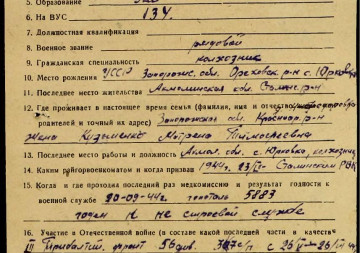 5. Образование
6. На ВУС 134.
7. Должностная квалификация
8. Военное звание рядовой
9. Гражданская специальность колхозник
10. Место рождения УССР Запорожс. обл. Ореховск. р-н с. Юрковка
11. Последнее место жительства Акмолинская обл. Сталинс. р-н
12. Где проживает в настоящее время семья (фамилия, имя и отчество
родителей и точный их адрес) Запорожская обл.
жена Кузьменко Матрена Тимофеевна
13. Последнее место работы и должность Акмол. обл. с. Юрковка, колхозник
14. Каким райгорвоенкоматом и когда призван 1944г. Сталинским РВК
15. Когда и где проходил последний раз медкомиссию и результат годности к
военной службе 20-09-44г. 5883
годен к не строевой службе
16. Участие в Отечественной войне (в составе какой последней части и в качестве
III Прибалтий. фронт 56 див.